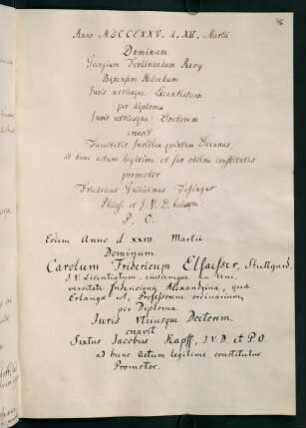 Anno MDCCLXXV. d. XII. Martii
Dominum
Georgium Ferdinandum
Juris utriusque Licentiatum
per diploma
Juris utriusque Doctorem
creavit
Facultatis Juridicae Decanus,
ad hunc actum legitime et constitutus
promotor
Fridericus Guilielmus
Philos. et J. U. D.
P. O.
Eodem Anno d. XXVII Martii
Dominum
Carolum Fridericum Elsaesser, Stuttgard.
J. V. Licentiatum, eiusdemque in Uni-
versitate Fridericiana Alexandrina, quae
Erlangae est, Professorem ordinarium,
per Diploma
Juris Utriusque Doctorem
creavit
Sixtus Jacobus Kapff, J. V. D. et P. O
ad hunc actum legitime constitutus
Promotor.